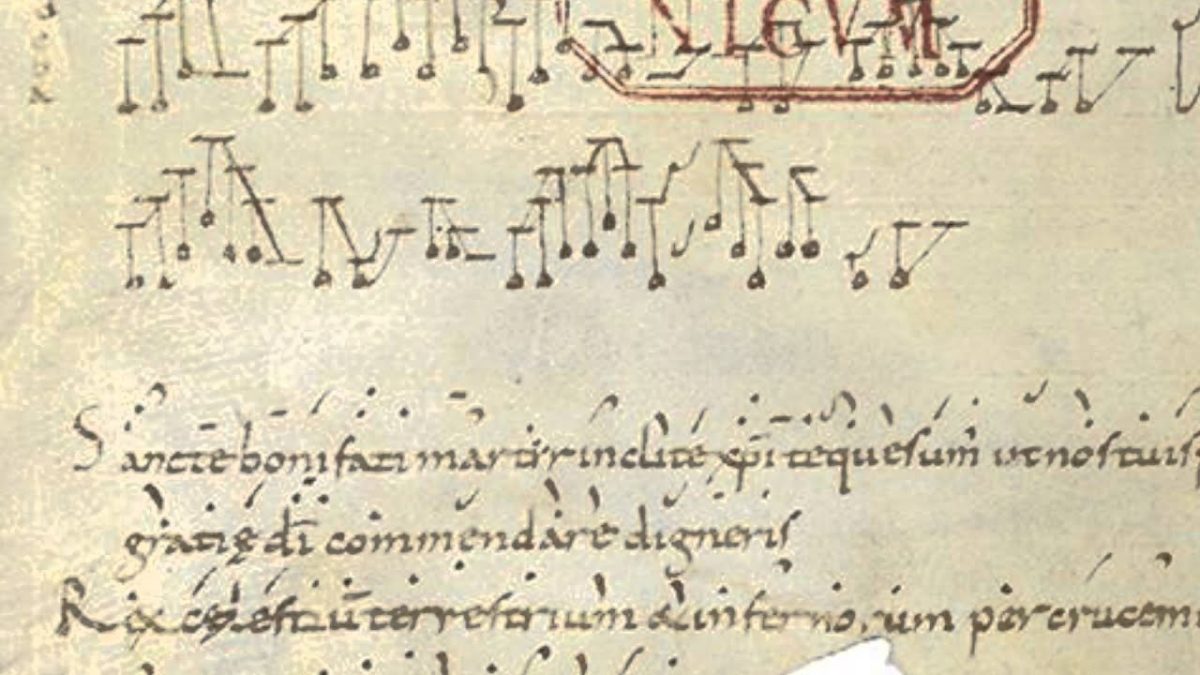 NIGVM
Sancte bonifati martir inclite xp̄i te quesum̄ ut nos tuis
gratię dī commendare digneris
Rex cęlestiū terrestrium & infernorum per crucem